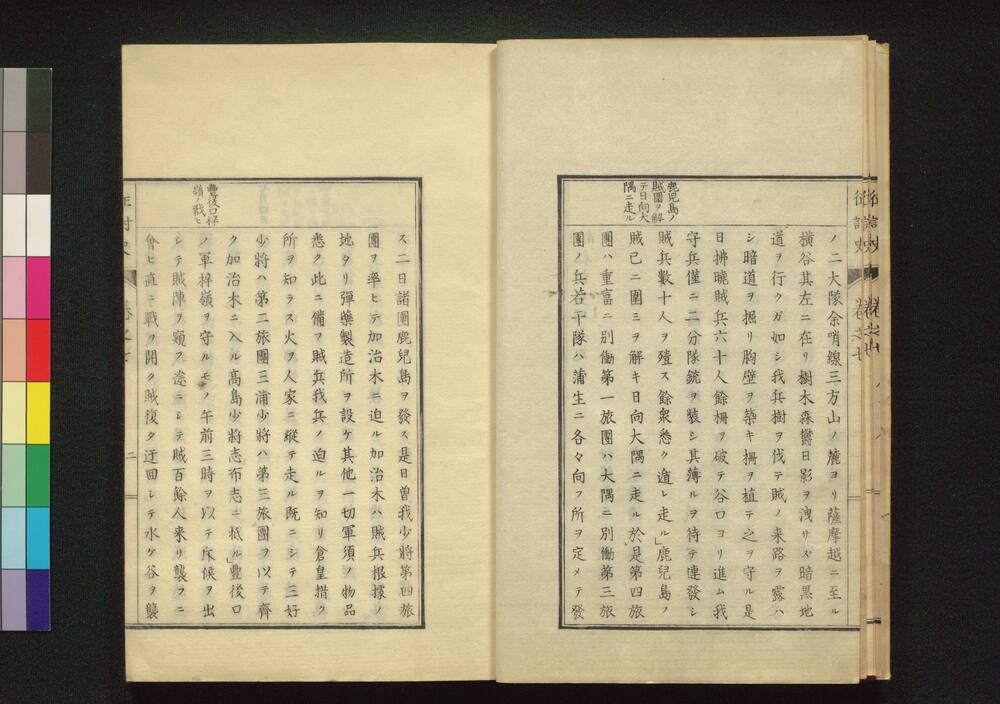 ノ二大隊余哨線三方山ノ麓ヨリ薩摩越ニ至ル
横谷其左ニ在リ樹木森欝日影ヲ洩サズ暗黒地
道ヲ行クガ如シ我兵樹ヲ伐テ賊ノ来路ヲ露ハ
シ暗道ヲ掘リ胸壁ヲ築キ柵ヲ植テ之ヲ守ル是
日拂曉賊兵六十人餘柵ヲ破テ谷口ヨリ進ム我
守兵僅ニ二分隊銃ヲ装シ其薄ルヲ待テ連發シ
賊兵數十人ヲ殪ス餘衆悉ク遁レ走ル」鹿兒島ノ
賊已ニ圍ミヲ解キ日向大隅ニ走ル於是第四旅
團ハ重富ニ別働第一旅團ハ大隅ニ別働第三旅
團ノ兵若干隊ハ蒲生ニ各々向フ所ヲ定メテ發
鹿児島ノ
賊圍ヲ解
テ日向大
隅ニ走ル
ス二日諸團鹿兒島ヲ發ス是日曽我少將第四旅
團ヲ率ヒテ加治木ニ迫ル加治木ハ賊兵根據ノ
地タリ彈藥製造所ヲ設ケ其他一切軍須ノ物品
悉ク此ニ備フ賊兵我兵ノ迫ルヲ知リ倉皇措ク
所ヲ知ラス火ヲ人家ニ縱テ走ル既ニシテ三好
少將ハ第二旅團三浦少將ハ第三旅團ヲ以テ齊
ク加治木ニ入ル髙島少將志布志ニ抵ル」豊後口
ノ軍梓嶺ヲ守ルモノ午前三時ヲ以テ斥候ヲ出
シテ賊陣ヲ窺フ途ニシテ賊百餘人来リ襲フニ
會ヒ直ニ戰ヲ開ク賊復タ迂回シテ水ケ谷ヲ襲
豐後口梓
嶺ノ戰ヒ
二